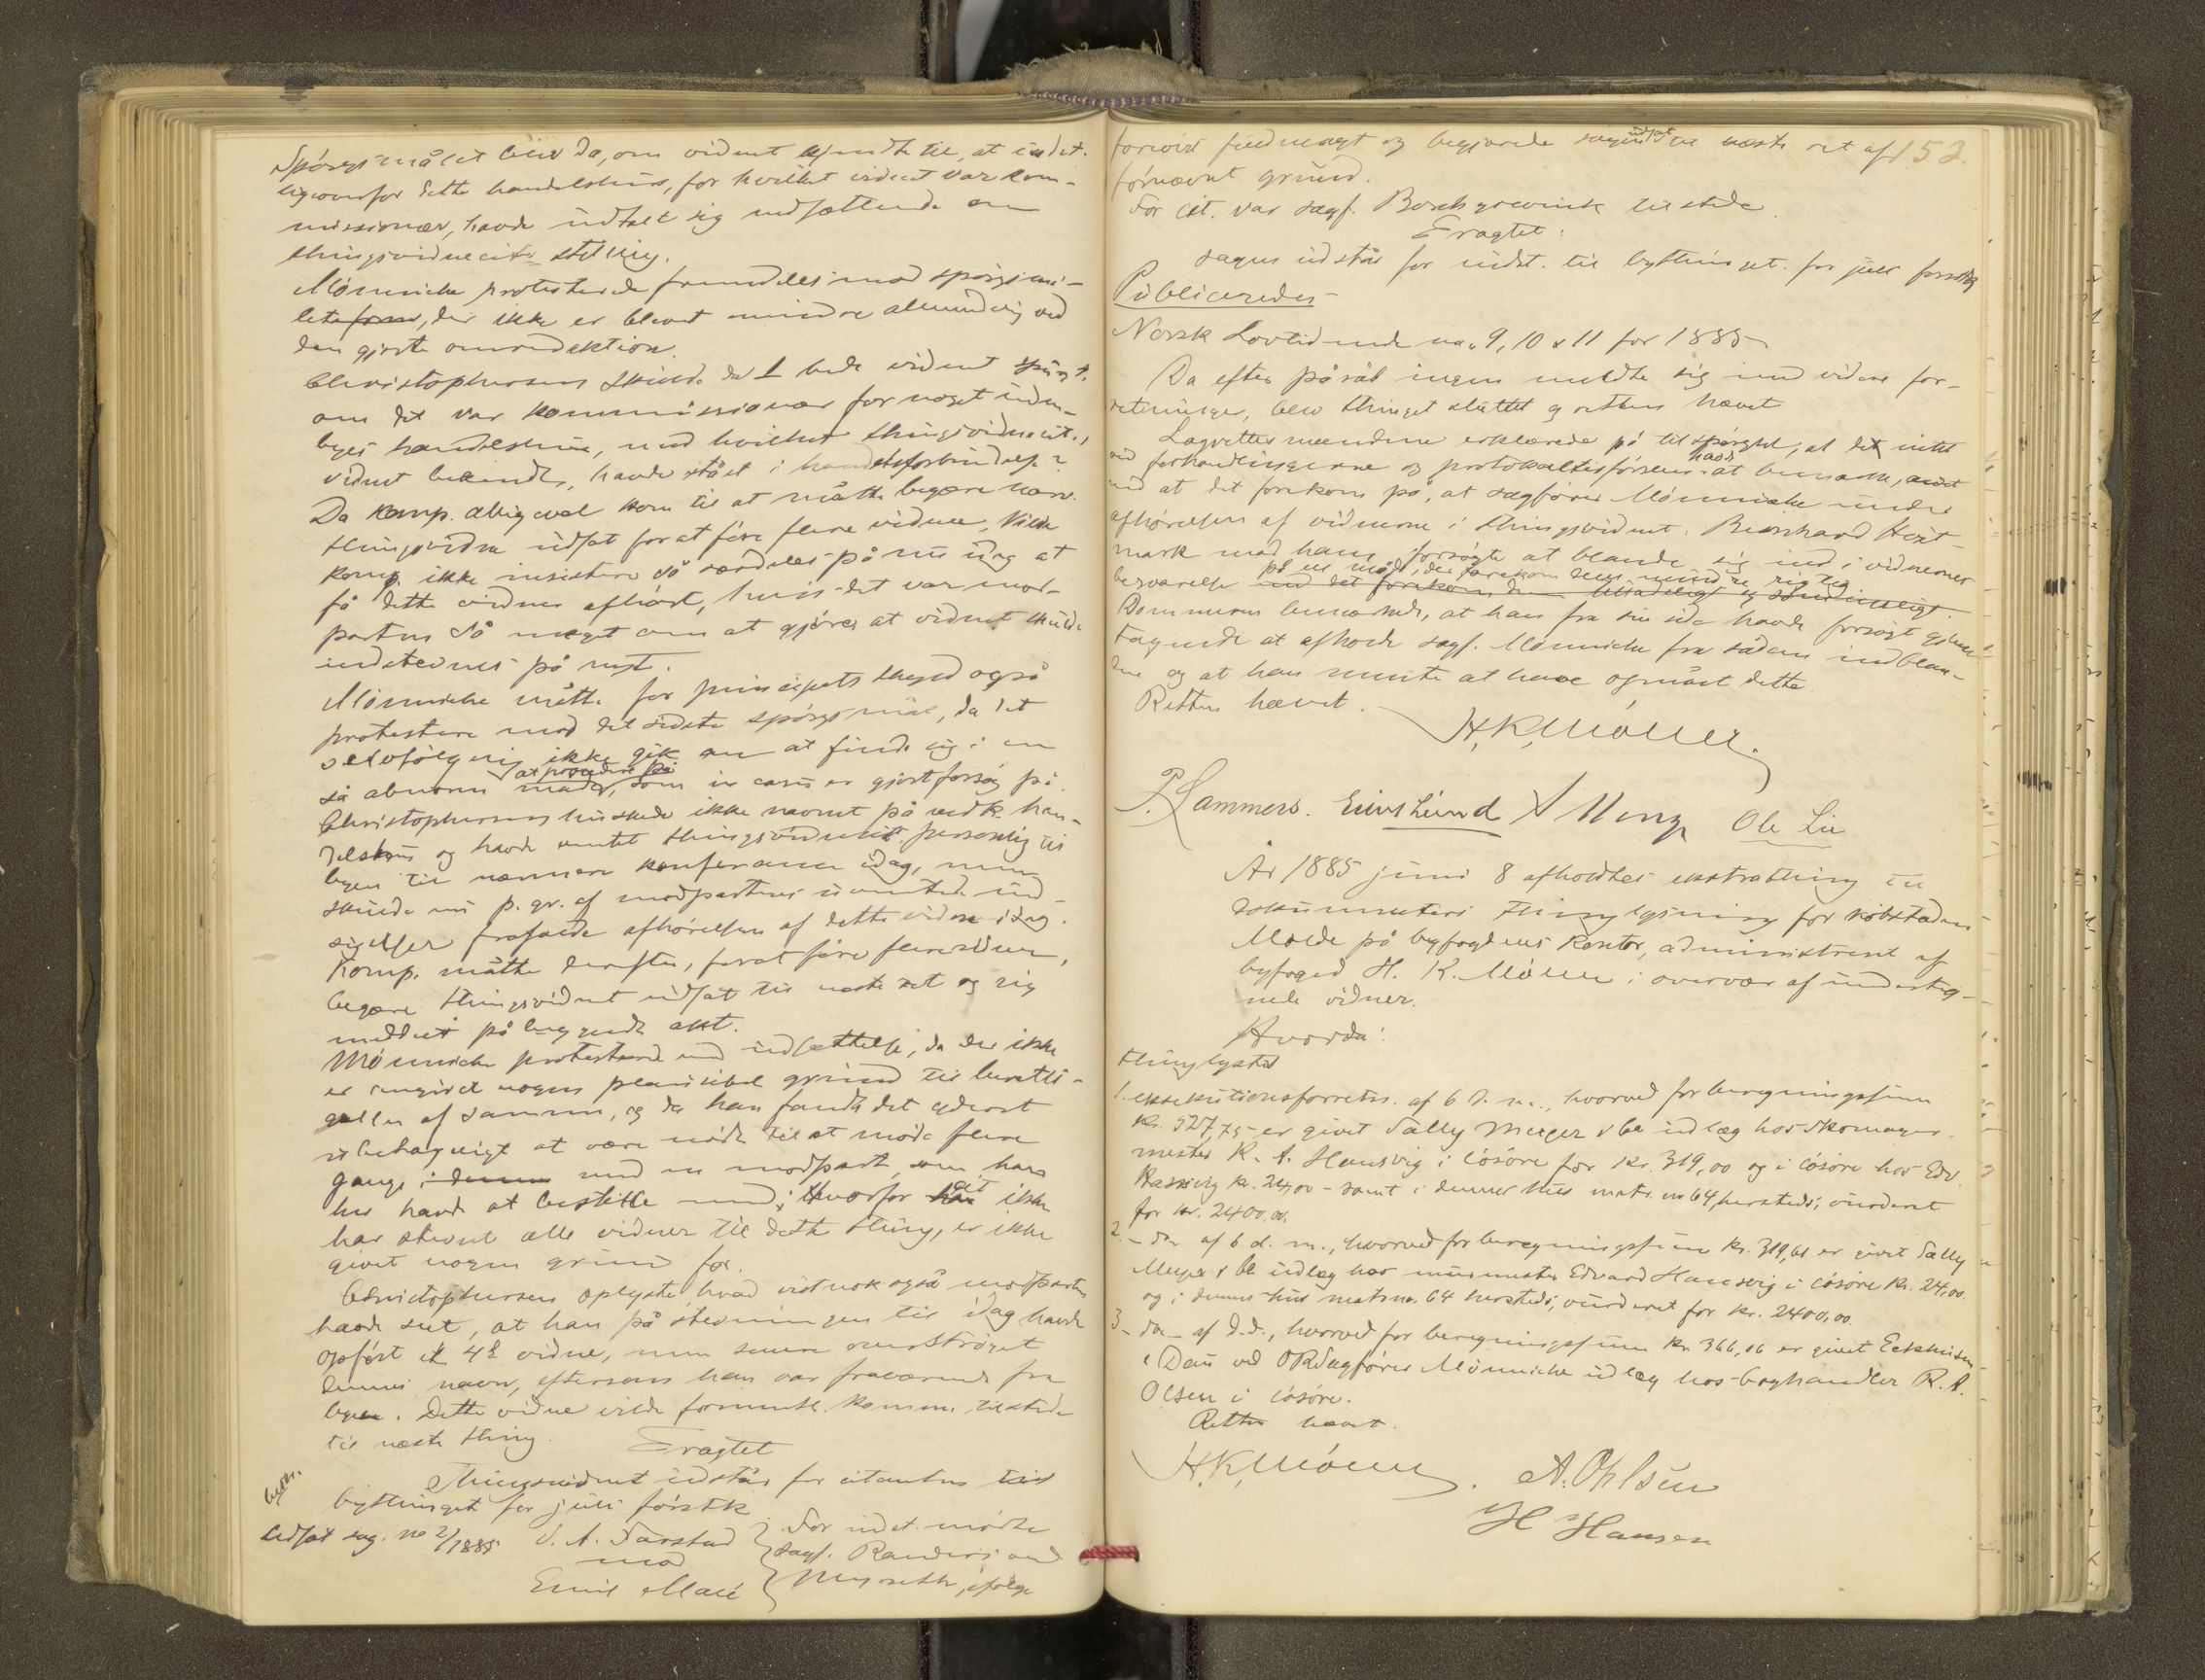 Spörgsmålet blev da, om vidnet kjendte til, at indst.
ligeoverfor dette handelshus, for hvilket vidnet var kom-
missionær, havde udtalt sig nedsættende om
thingsvidnecit. stilling.
Mönniche protesterede fremdeles mod spörgsmå-
lets form, der ikke er blevet mindre almindelig ved
den gjorte omredaktion.
Christophersen skulde da bede vidnet spurgt,
om det var kommissionær for noget uden-
byes handelshus, med hvilket thingsvidnecit.,
vidnet bekendt, havde stået i handelsforbindelse?
Da komp. alligevel kom til at måtte begære nærv.
thingsvidne udsat for at före flere vidner, vilde
komp. ikke insistere så særdeles på nu idag at
få dette vidne afhört, hvis det var mod-
parten så meget om at gjöre, at vidnet skulde
indstevnes på nyt.
Mönniche måtte for princippets skyld også
protestere mod det sidste spörgsmål, da det
selvfölgelig ikke gik an at finde sig i en
så abnorm måde at procedere på, som in casu er gjort forsög på.
Christophersen huskede ikke navnet på vedk. han-
delshus og havde ventet thingsvidnecit. personlig til
byen til nærmere konferance idag, men
skulde nu p. gr. af modpartens uventede ind-
sigelser frafalde afhörelsen af dette vidne idag.
Komp. måtte derefter, for at före flere vidner,
begære thingsvidnet udsat til næste ret og sig
meddelt påbegyndt akt.
Mönniche protesterede mod udsættelse, da der ikke
er angivet nogen plausibel grund til beretti-
gelsen af samme, og da han fandt det yderst
ubehageligt at være nödt til at möde flere
gange i denne med en modpart, som han
her havde at bestille med; hvorfor det ikke
har stevnt alle vidner til dette thing, er ikke
givet nogen grund for.
Christophersen oplyste, hvad vistnok også modparten
havde set, at han på stevningen til idag havde
opfört et 4de vidne, men senere overströget
dennes navn, eftersom han var fraværende fra
byen. Dette vidne vilde formentl. komme tilstede
til næste thing.
Eragtet
Thingsvidnet udstår for citanten til
bythinget for juli förstk
Udsat sag. no 2/1885 O. A. Farstad
mod
Emil Malé
For indst. mödte
sagf. Randers med
Myrseth, ifölge
153.
forevist fuldmagt og begjærede sagen udsat til næste ret af
förnævnt grund.
For cit. var sagf. Borchgrevink tilstede.
Eragtet:
Sagen udstår for indst. til bythinget for juli förstk
Publiceredes
Norsk Lovtidende no. 9, 10 & 11 for 1885
Da efter påråb ingen meldte sig med videre for-
retninger, blev thinget sluttet og retten hævet
Lagrettesmændene erklærede på tilspörgsel, at de intet
ved forhandlingerne og protokollens förelse havde at bemærke, andet
end at det forekom på, at sagförer Mönniche under
afhörelsen af vidnerne i thingsvidnet: Bernhard Holt-
mark mod ham forsögte at blande sig ind i vidnernes
besvarelse på en måde, der forekom dem mindre rigtig
Dommeren bemærkede, at han fra sin side havde forsögt gjen-
tagende at afholde sagf. Mönniche fra sådan indblan-
den og at han mente at have opnået dette.
Retten hævet.
H. K. Möller.
P. Lammers. Eivs Lund A Mong Ole Lie
År 1885 juni 8 afholdtes ekstrathing til
dokumenters thinglysning for köbstaden
Molde på byfogdens kontor, administreret af
byfoged H. K. Möller i overvær af underteg-
nede vidner.
Hvorda:
Thinglystes
1. eksekutionsforretn. af 6 d. m., hvorved for beregningssum
Kr. 327,75 er givet Sally Meyer & Co udlæg hos skomager-
mester K. A. Hansvig i lösöre for kr. 319,00 og i lösöre hos Edv.
Hansvig kr. 24,00 - samt i dennes hus matr. no 64 hersteds, vurderet
for kr. 2400,00.
2. - do af 6 d. m., hvorved for beregningssum kr. 319,61 er givet Sally
Meyer & Co udlæg hos murmester Edvard Hansvig i lösöre kr. 24,00.
og i dennes hus matr. no. 64 hersteds, vurderet for kr. 2400,00.
3 - do - af d.d., hvorved for beregningssum kr. 366,06 er givet
Dau ved ORSagförer Mönniche udlæg hos boghandler R. A.
Olsen i lösöre.
Retten hævet.
H. K. Möller. A. Ohlsen
H Hansen